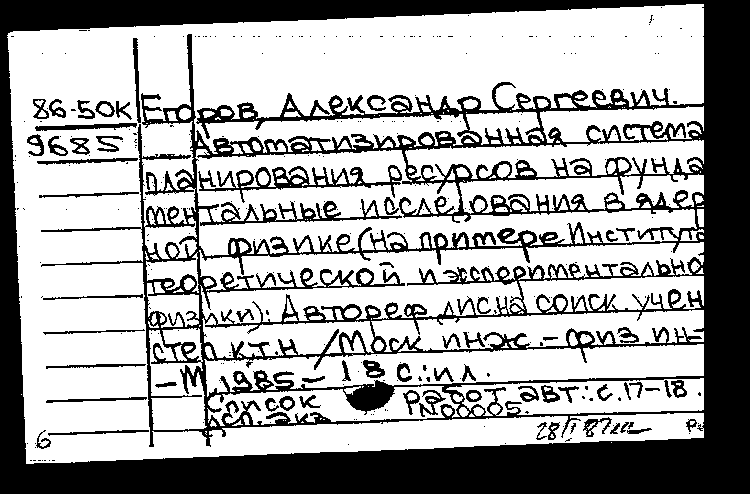 86-50К Егоров, Александр Сергеевич.
9685 Автоматизированная система
планирования ресурсов на фунда
ментальные исследования в ядер
ной физике (на примере Института
теоретической и экспериментально
физики): Автореф. дис. на соиск. учен
степ. к.т.н /Моск. инж.-физ. ин-
-М, 1985.- 18 с.:ил.
Список работ авт.: с.17-18.
№00005.
6 28/I 87